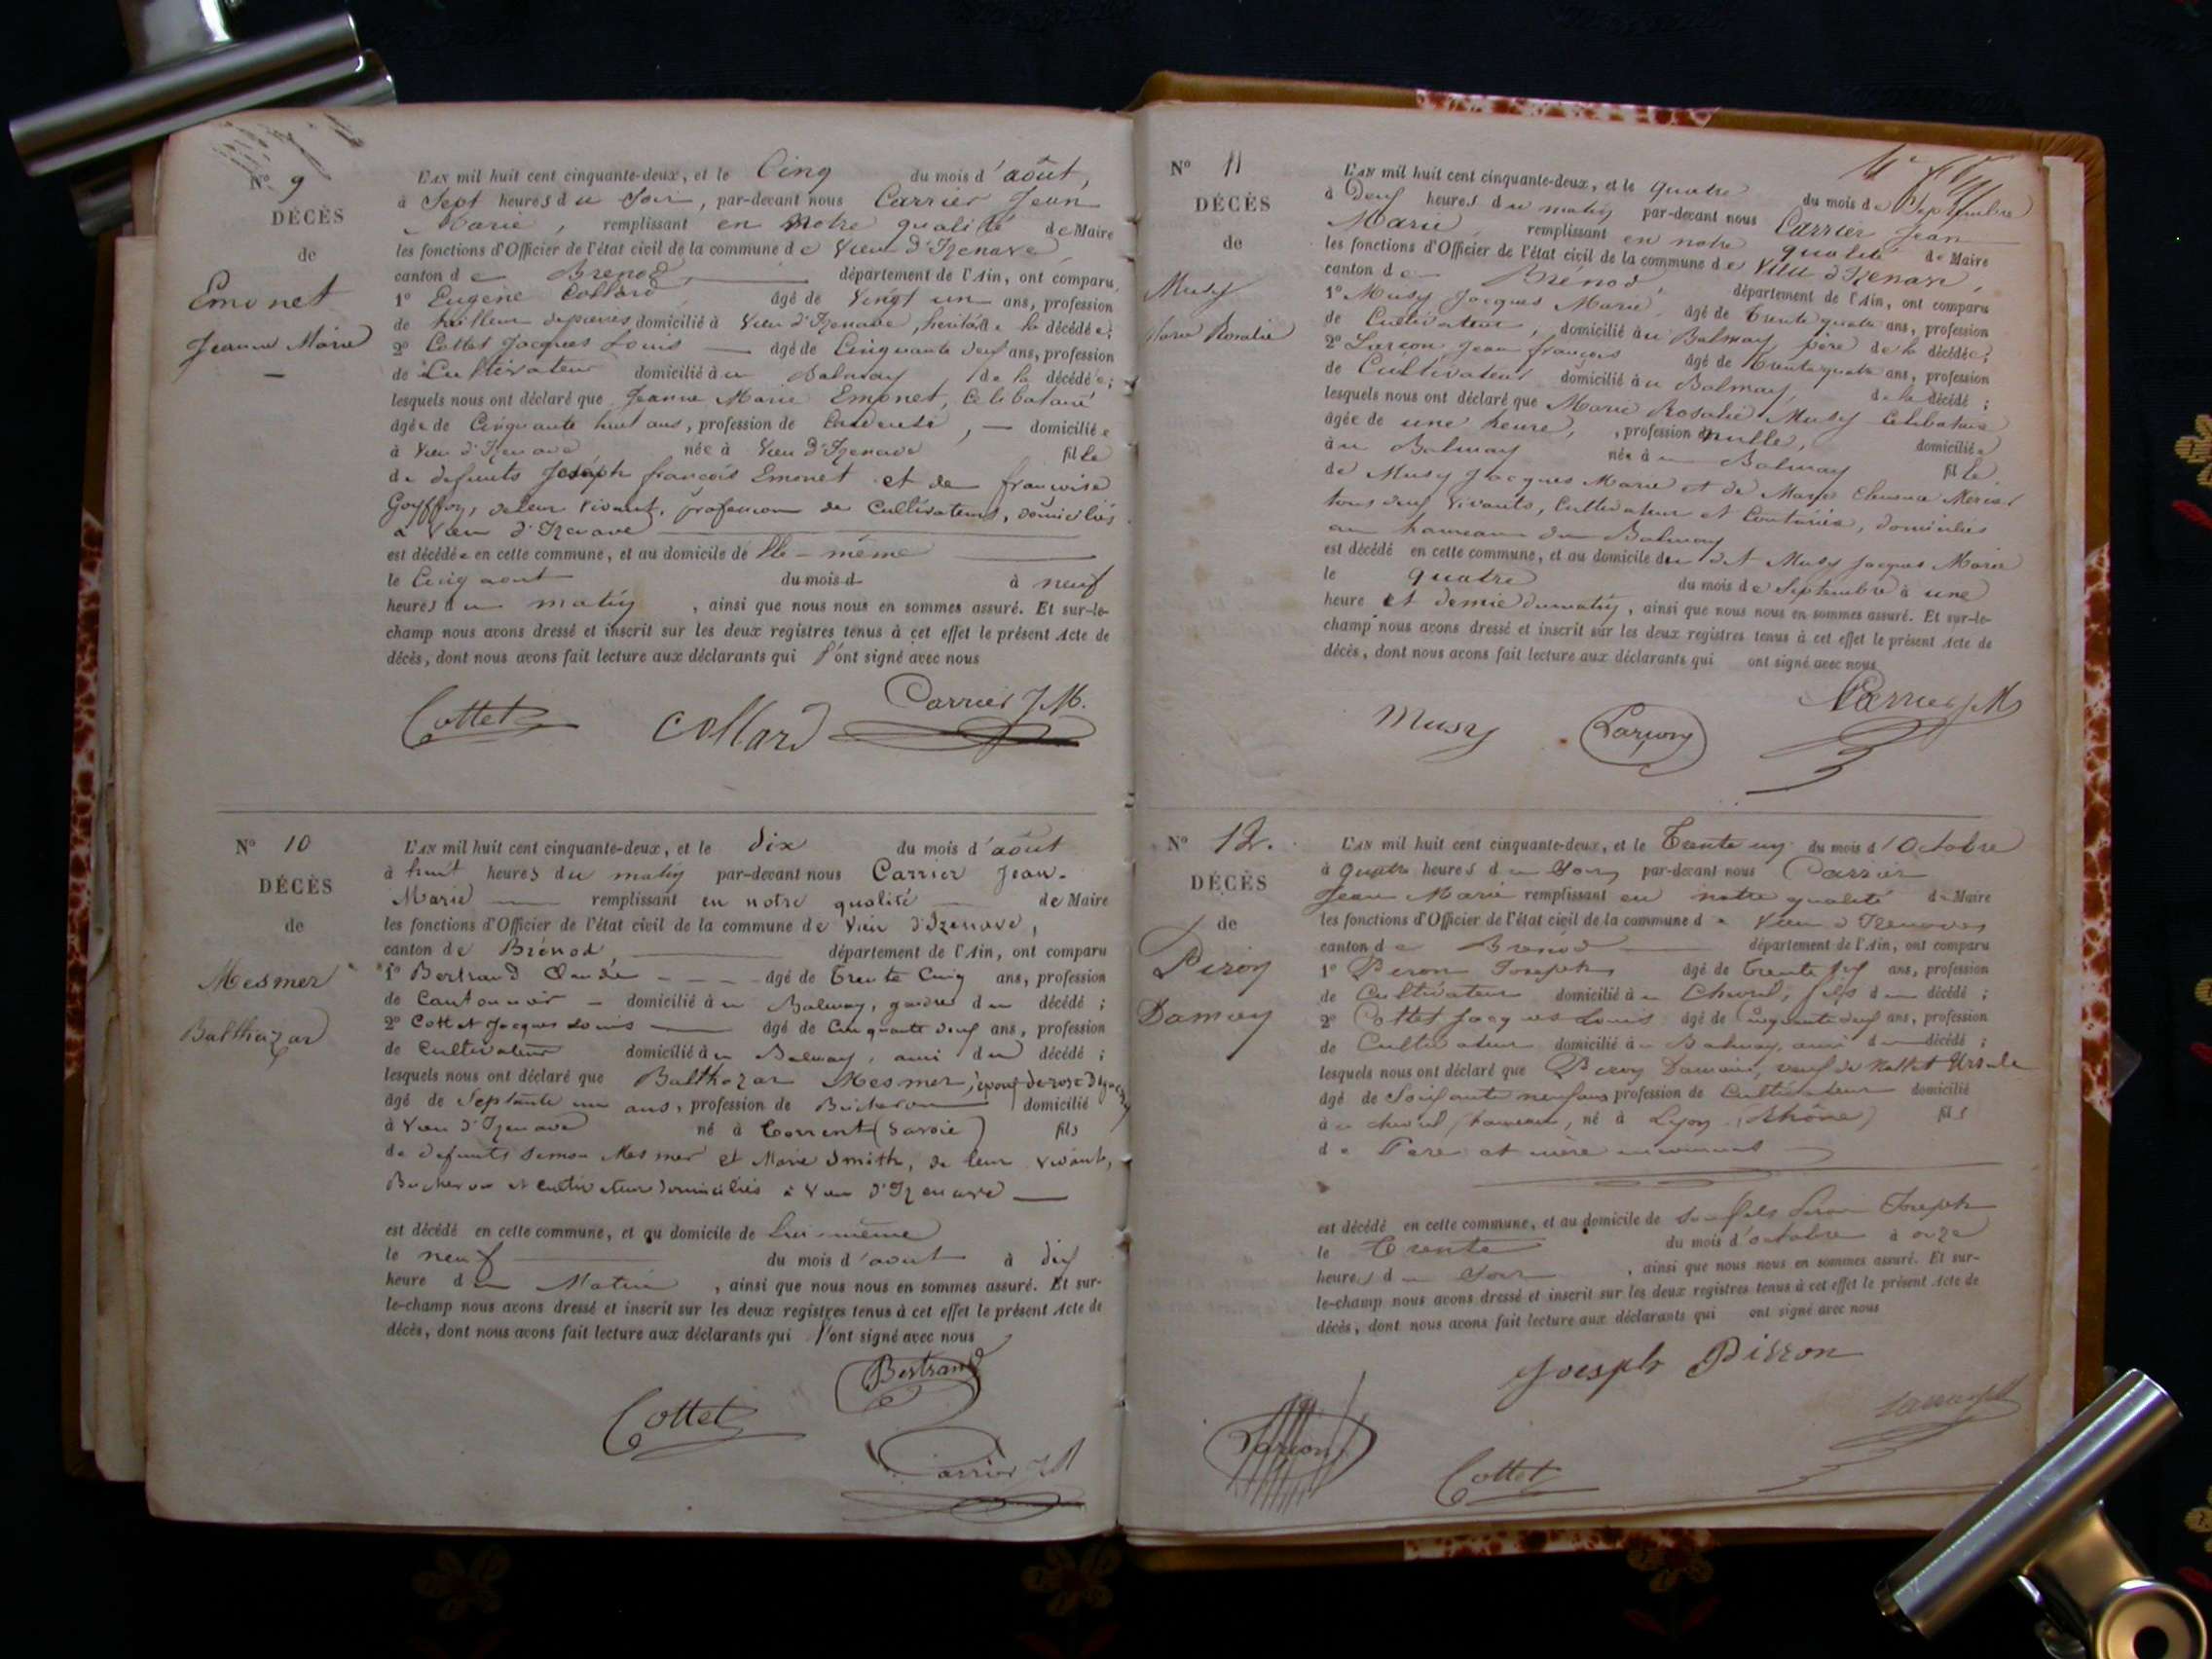 N° 9
DÉCÈS
de
Emonet
Jeanne Marie
L'AN mil huit cent cinquante-deux, et le Cinq du mois d'août,
à Sept heures du Soir, par-devant nous Carrier Jean
Marie, remplissant en notre qualité de Maire
les fonctions d'Officier de l'état civil de la commune de Vieu d'Izenave,
canton de Brenod, département de l'Ain, ont comparu,
1° Eugène Collard âgé de Vingt un ans, profession
de tailleur de pierres, domicilié à Vieu d'Izenave, de la décédée;
2° Cottet Jacques Louis âgé de Cinquante deux ans, profession
de Cultivateur domicilié au Balmay, de la décédée;
lesquels nous ont déclaré que Jeanne Marie Emonet, Célibataire
âgée de Cinquante huit ans, profession de domiciliée
à Vieu d'Izenave née à Vieu d'Izenave fille
de defunts Joseph françois Emonet et de françoise
Goyffon, de leur vivant, profession de Cultivateurs, domiciliés
à Vieu d'Izenave
est décédée en cette commune, et au domicile de Elle-même
le Cinq aout du mois d à neuf
heures du matin, ainsi que nous nous en sommes assuré. Et sur-le-
champ nous avons dressé et inscrit sur les deux registres tenus à cet effet le présent Acte de
décès, dont nous avons fait lecture aux déclarants qui l'ont signé avec nous
Cottet Collard Carrier J M.
N° 10
DÉCÈS
de
Mesmer
Balthazar
L'AN mil huit cent cinquante-deux, et le dix du mois d'août
à huit heures du matin par-devant nous Carrier Jean-
Marie remplissant en notre qualité de Maire
les fonctions d'Officier de l'état civil de la commune de Vieu d'Izenave,
canton de Brénod, département de l'Ain, ont comparu
1° Bertrand Claude âgé de Trente Cinq ans, profession
de Cantonnier domicilié au Balmay, gendre du décédé;
2° Cottet Jacques Louis âgé de Cinquante deux ans, profession
de Cultivateur domicilié au Balmay, ami du décédé;
lesquels nous ont déclaré que Balthazar Mesmer, époux de rose
âgé de Septante un ans, profession de Bucheron domicilié
à Vieu d'Izenave né à Torrent (Savoie) fils
de defunts Simon Mesmer et Marie Smith, de leur vivants,
Bucheron et cultivateur domiciliés à Vieu d'Izenave
est décédé en cette commune, et au domicile de Lui-même
le neuf du mois d'aout à dix
heure du Matin, ainsi que nous nous en sommes assuré. Et sur-
le-champ nous avons dressé et inscrit sur les deux registres tenus à cet effet le présent Acte de
décès, dont nous avons fait lecture aux déclarants qui l'ont signé avec nous
Bertrand
Cottet
Carrier J M
N° 11
DÉCÈS
de
Musy
Marie Rosalie
L'AN mil huit cent cinquante-deux, et le quatre du mois de Septembre
à Deux heures du matin par-devant nous Carrier Jean
Marie, remplissant en notre qualité de Maire
les fonctions d'Officier de l'état civil de la commune de Vieu d'Izenave,
canton de Brénod, département de l'Ain, ont comparu
1° Musy Jacques Marie, âgé de Trente quatre ans, profession
de Cultivateur, domicilié au Balmay, père de la décédée;
2° Larçon Jean françois âgé de trente quatre ans, profession
de Cultivateur domicilié au Balmay, de la décédé;
lesquels nous ont déclaré que Marie Rosalie Musy Célibataire
âgée de une heure, profession nulle, domiciliée
au Balmay née au Balmay fille
de Musy Jacques Marie et de Mercier
tous deux vivants, Cultivateur et Couturière, domiciliés
au hameau du Balmay
est décédé en cette commune, et au domicile du dit Musy Jacques Marie
le quatre du mois de Septembre à une
heure et demie du matin, ainsi que nous nous en sommes assuré. Et sur-le-
champ nous avons dressé et inscrit sur les deux registres tenus à cet effet le présent Acte de
décès, dont nous avons fait lecture aux déclarants qui ont signé avec nous
Musy Larçon Carrier J M
N° 12.
DÉCÈS
de
Piron
Damien
L'AN mil huit cent cinquante-deux, et le Trente un du mois d'Octobre
à Quatre heures du Soir par-devant nous Carrier
Jean Marie remplissant en notre qualité de Maire
les fonctions d'Officier de l'état civil de la commune de Vieu d'Izenave
canton de Brenod département de l'Ain, ont comparu
1° Piron Joseph âgé de trente six ans, profession
de Cultivateur domicilié à Chevril, fils du décédé;
2° Cottet Jacques Louis âgé de Cinquante deux ans, profession
de Cultivateur domicilié au Balmay, ami du décédé;
lesquels nous ont déclaré que Piron Damien, veuf de Ursule
âgé de Soixante neuf ans profession de Cultivateur domicilié
à Chevril (hameau), né à Lyon (Rhône) fils
de Père et mère inconnus
est décédé en cette commune, et au domicile de son fils Piron Joseph
le Trente du mois d'octobre à onze
heures du Soir, ainsi que nous nous en sommes assuré. Et sur-
le-champ nous avons dressé et inscrit sur les deux registres tenus à cet effet le présent Acte de
décès, dont nous avons fait lecture aux déclarants qui ont signé avec nous
Joesph Pirron
Larçon
Cottet